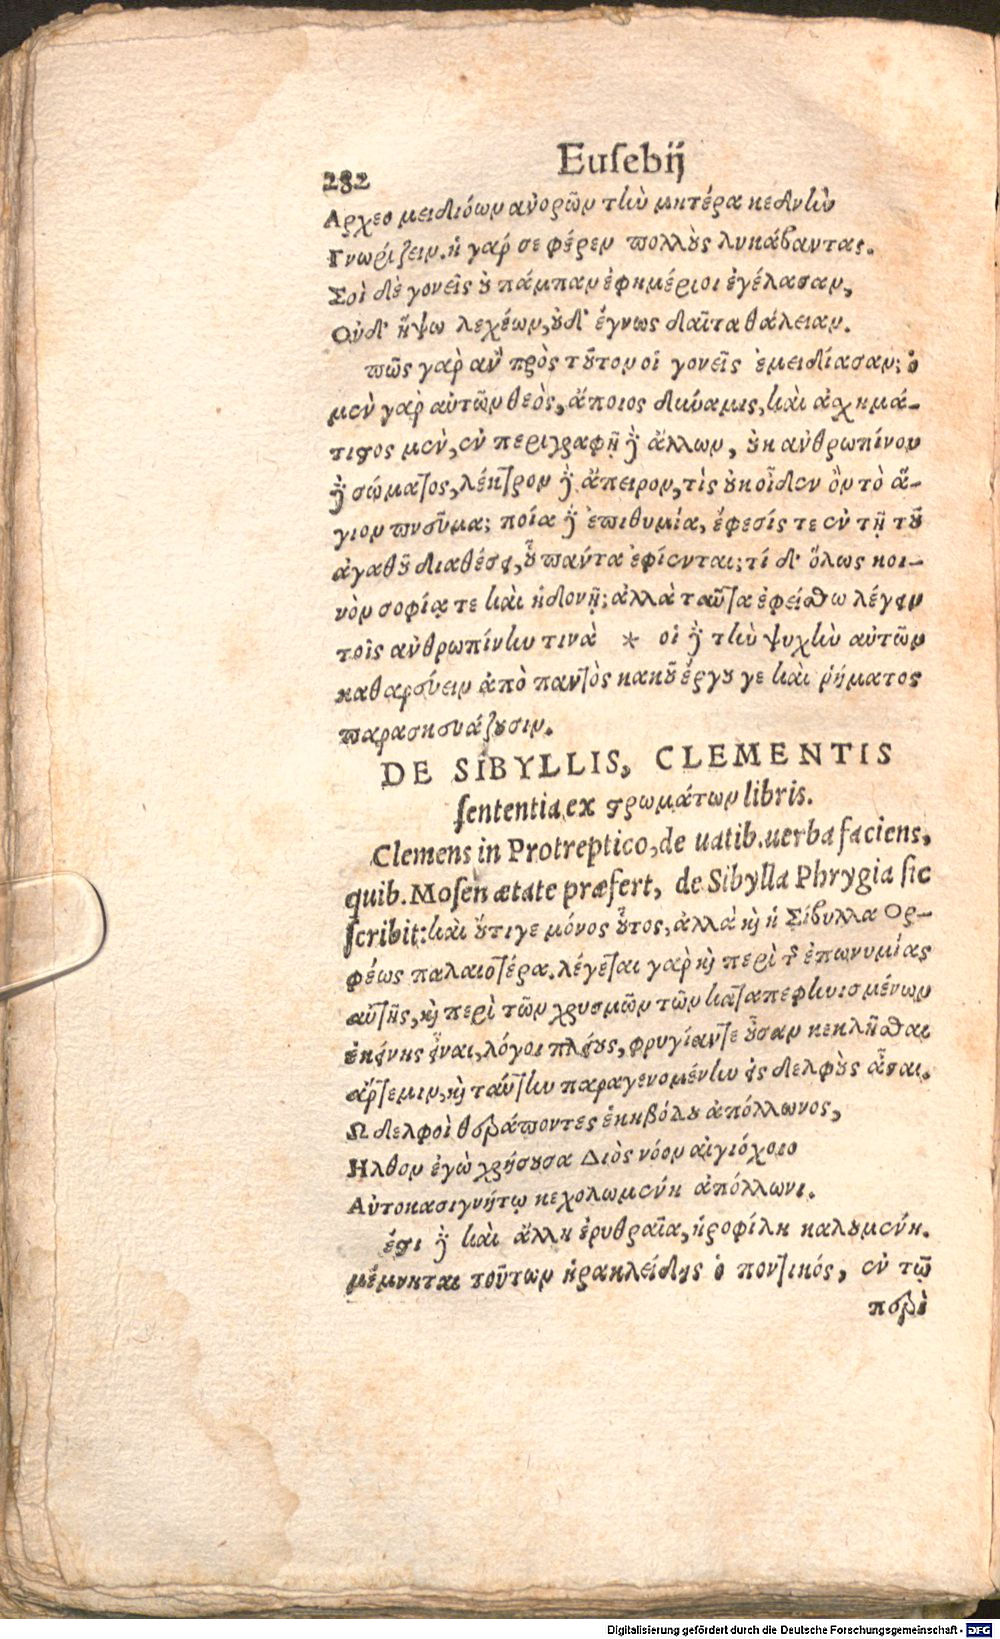 282
Eusebij
Αρχεο μειδιόων ἀνορῶν τὴν μητέρα κεδνὴν
Γνωρίζειν. ἡ γάρ σε φέρεν πολλοὺς λυκάβαντας.
Σοὶ δὲ γονεῖς οὐ πάμπαν ἐφημέριοι ἐγέλασαν,
Οὐδ' ἥψω λεχέων, οὐδ' ἔγνως δαῖτα θάλειαν.
πῶς γὰρ ἂν πρὸς τοῦτον οἱ γονεῖς ἐμειδίασαν; ὁ
μὲν γὰρ αὐτῶν θεὸς, ἄποιος δύναμις, καὶ ἀχημά-
τιστος μὲν, ἐν περιγραφῇ δὲ ἄλλων, οὐκ ἀνθρωπίνου
δὲ σώματος, λέκτρον δὲ ἄπειρον, τίς οὐκ οἶδεν ὂν τὸ ἅ-
γιον πνεῦμα; ποία δὲ ἐπιθυμία, ἔφεσίς τε ἐν τῇ τοῦ
ἀγαθοῦ διαθέσει, οὗ πάντα ἐφίενται; τί δ' ὅλως κοι-
νὸν σοφίᾳ τε καὶ ἡδονῇ; ἀλλὰ ταῦτα ἐφείσθω λέγειν
τοῖς ἀνθρωπίνην τινὰ * οἱ δὲ τὴν ψυχὴν αὐτῶν
καθαρεύειν ἀπὸ παντὸς κακοῦ ἔργου γε καὶ ῥήματος
παρασκευάζουσιν.
DE SIBYLLIS, CLEMENTIS
sententia ex στρωμάτων libris.
Clemens in Protreptico, de uatib. uerba faciens,
quib. Mosen ætate præfert, de Sibylla Phrygia sic
scribit: καὶ οὔτιγε μόνος οὗτος, ἀλλὰ καὶ ἡ Σίβυλλα Ορ-
φέως παλαιοτέρα. λέγεται γὰρ καὶ περὶ τῆς ἐπωνυμίας
αὐτῆς, καὶ περὶ τῶν χρυσμῶν τῶν καταπεφηυισμένων
ἐκείνης εἶναι, λόγοι πλείους, φρυγίαντε οὖσαν κεκλῆσθαι
ἄρτεμιν, καὶ ταύτην παραγενομένην εἰς δελφοὺς ᾆσαι.
Ω δελφοὶ θεράποντες ἑκηβόλου ἀπόλλωνος,
Ηλθον ἐγὼ χρήσουσα Διὸς νόον αἰγιόχοιο
Αὐτοκασιγνήτῳ κεχολωμένη ἀπόλλωνι.
ἔστι δὲ καὶ ἄλλη ἐρυθραῖα, ἡροφίλη καλουμένη.
μέμνηται τούτων ἡρακλείδης ὁ ποντικός, ἐν τῷ
περὶ
Digitalisierung gefördert durch die Deutsche Forschungsgemeinschaft - DFG